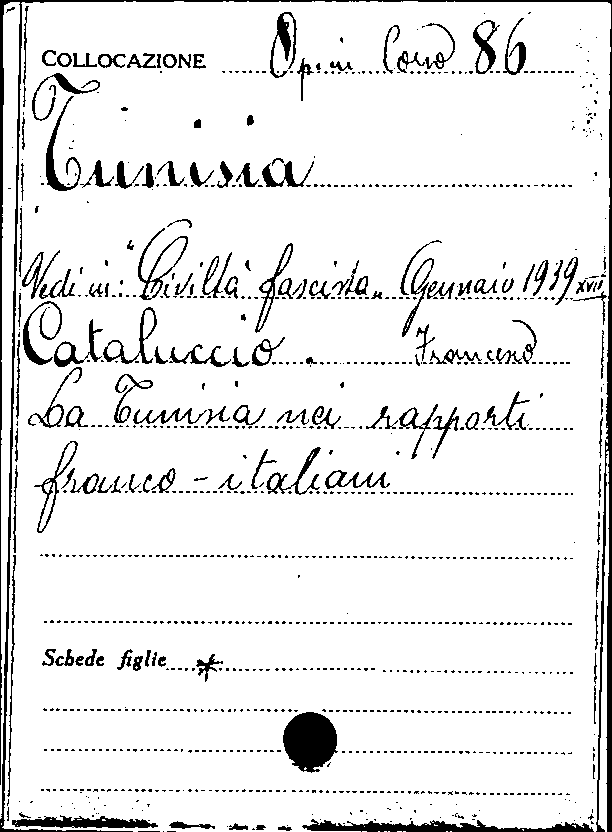 COLLOCAZIONE Opin Corso 86
Tunisia
Vedi in: "Civiltà fascista„ Gennaio 1939 XVII
Cataluccio. Francesco
La Tunisia nei rapporti
franco-italiani
Schede figlie *